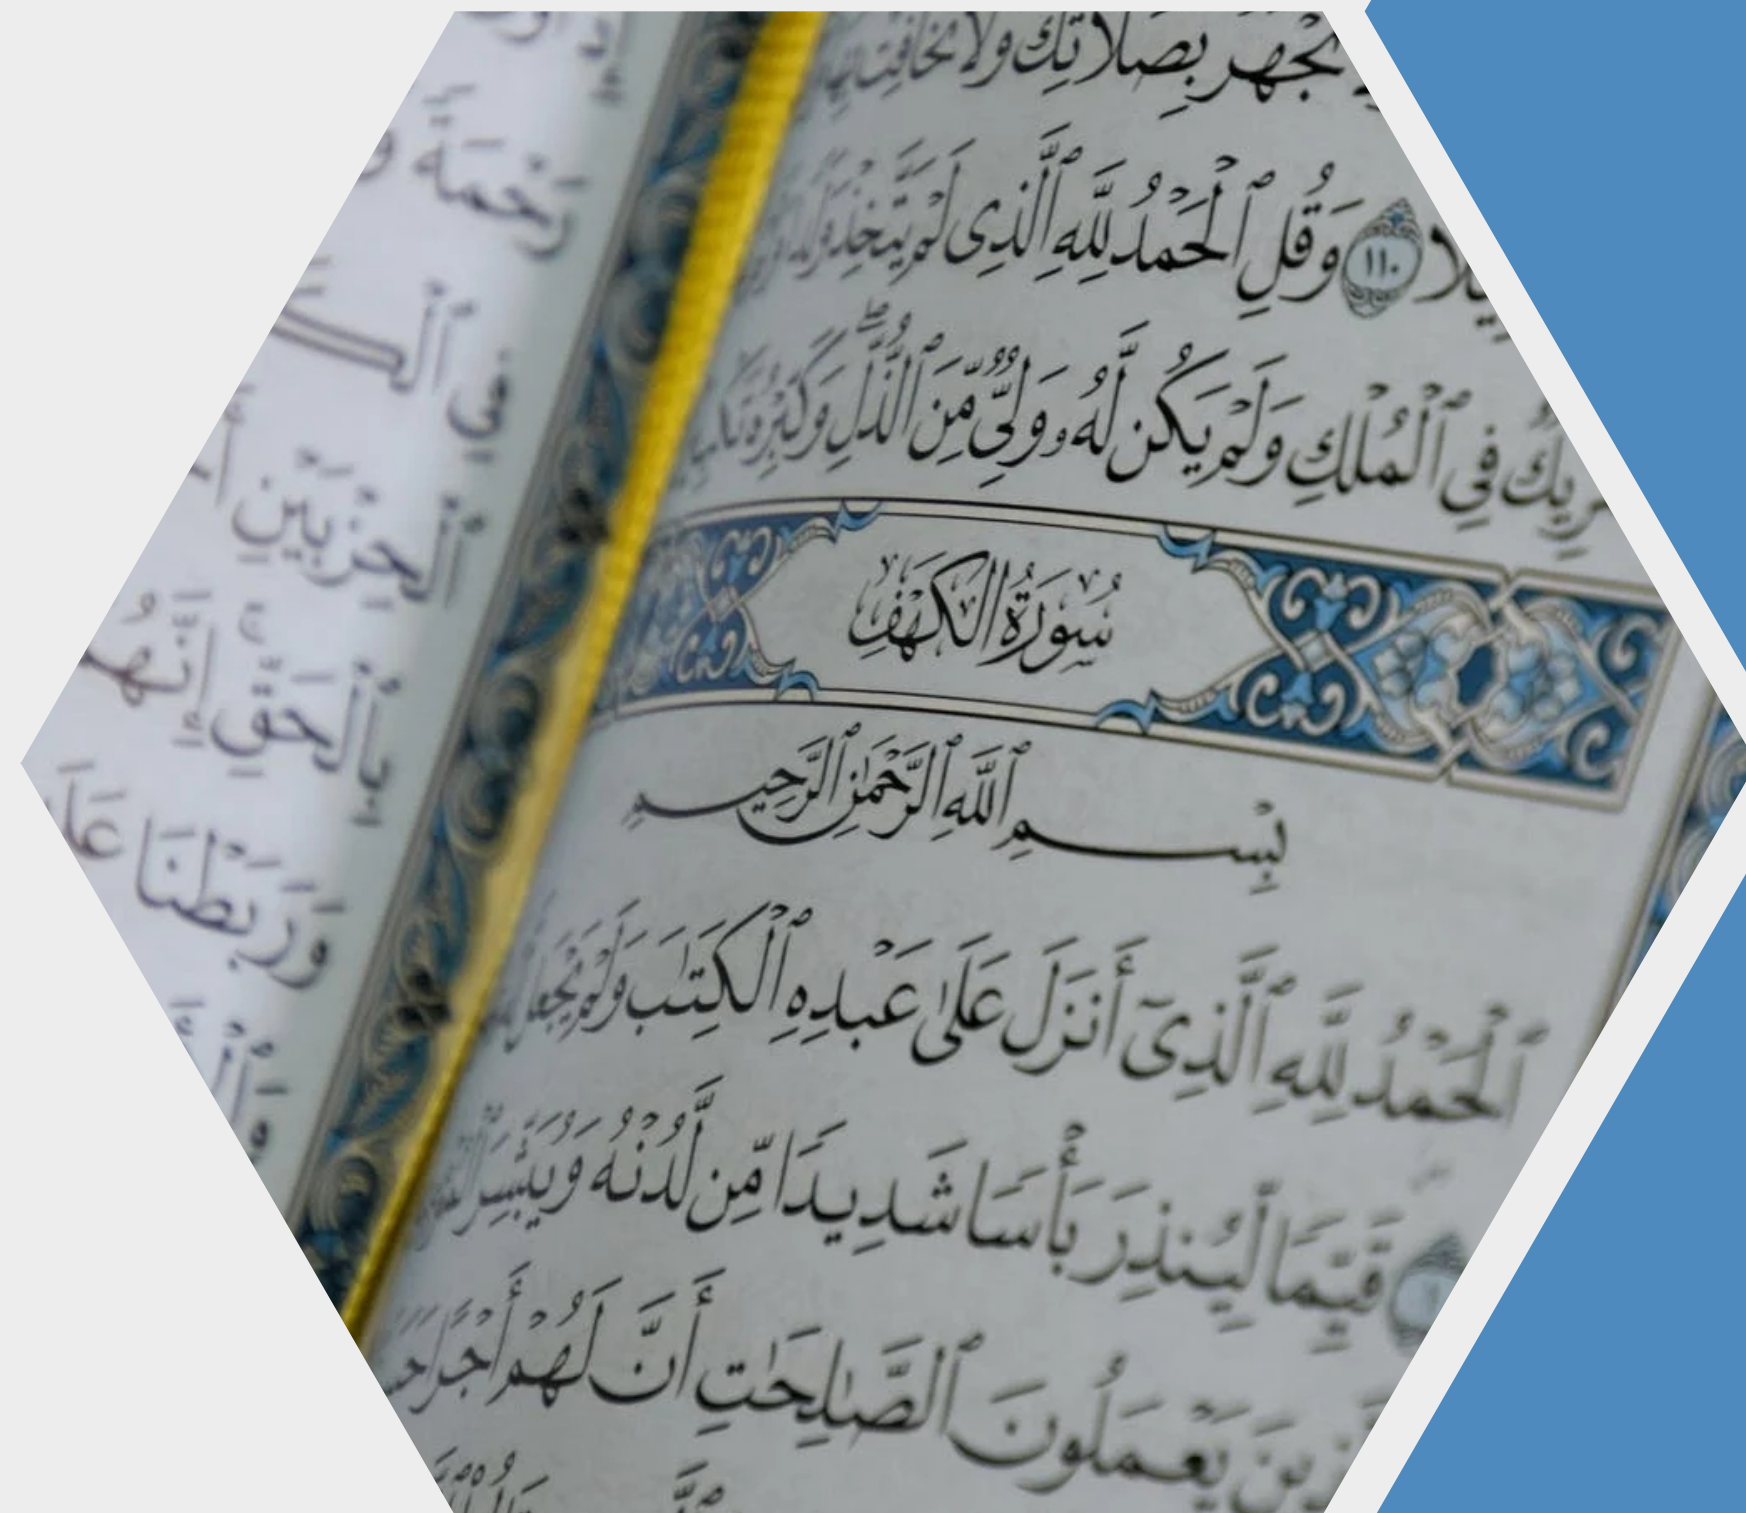 تَجْهَرْ بِصَلَاتِكَ وَلَا تُخَافِتْ بِهَا
يلًا ١١٠ وَقُلِ ٱلْحَمْدُ لِلَّهِ ٱلَّذِى لَمْ يَتَّخِذْ وَلَدًا
رِيكٌ فِى ٱلْمُلْكِ وَلَمْ يَكُن لَّهُۥ وَلِىٌّ مِّنَ ٱلذُّلِّ ۖ وَكَبِّرْهُ تَكْبِيرًا
سُورَةُ الكَهْفِ
بِسْمِ ٱللَّهِ ٱلرَّحْمَٰنِ ٱلرَّحِيمِ
ٱلْحَمْدُ لِلَّهِ ٱلَّذِىٓ أَنزَلَ عَلَىٰ عَبْدِهِ ٱلْكِتَٰبَ وَلَمْ يَجْعَل
قَيِّمًا لِّيُنذِرَ بَأْسًا شَدِيدًا مِّن لَّدُنْهُ وَيُبَشِّرَ
يَعْمَلُونَ ٱلصَّٰلِحَٰتِ أَنَّ لَهُمْ أَجْرًا
رَحْمَةً
فِى
ٱلْحِزْبَيْنِ
بِٱلْحَقِّ ۚ إِنَّهُمْ
وَرَبَطْنَا عَلَىٰ